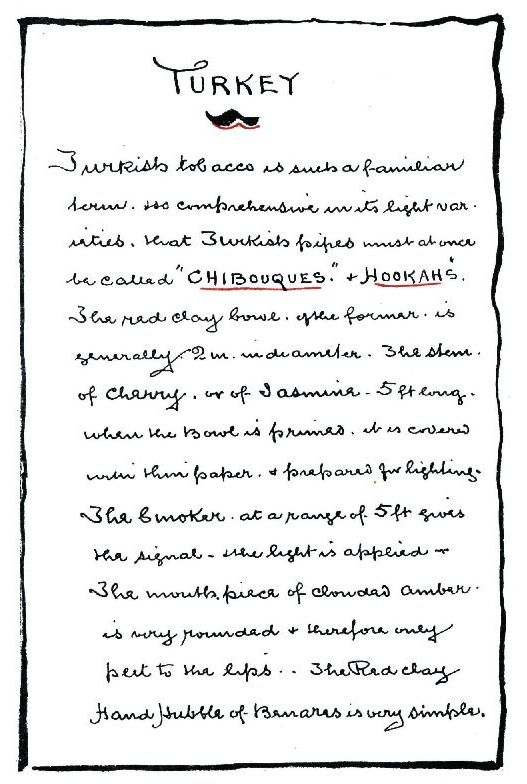 TURKEY
Turkish tobacco is such a familiar
term. so comprehensive in its light var.
ieties. that Turkish pipes must at once
be called "CHIBOUQUES." & HOOKAHS".
The red clay bowl. of the former. is
generally 2 in. in diameter. The stem.
of Cherry. or of Jasmine - 5 ft long.
when the Bowl is primed. it is covered
with thin paper. & prepared for lighting.
The Smoker. at a range of 5 ft gives
the signal - the light is applied -
The mouth piece of clouded amber.
is very rounded & therefore only
put to the lips.. The Red clay
Hand Hubble of Benares is very simple.